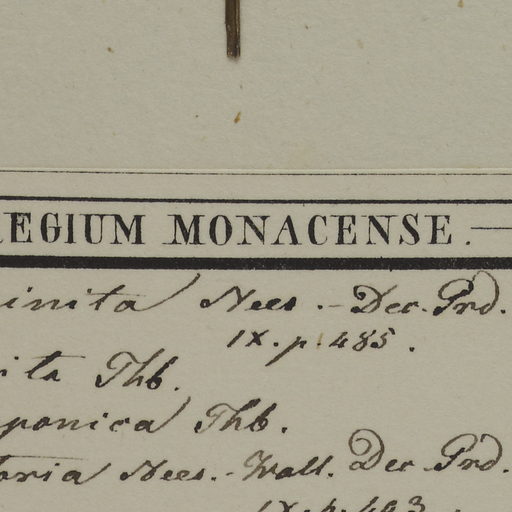 REGIUM MONACENSE.
inita Nees. - Dec. Prd.
IX. p. 485.
ita Thb.
ponica Thb.
oria Nees. - Wall. Dec. Prd.
IX. p. 493.